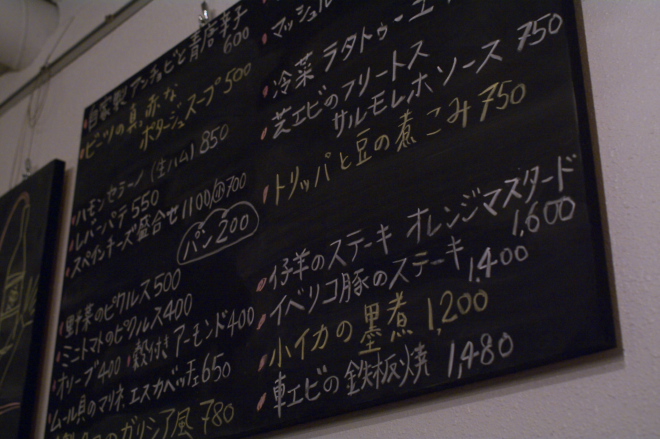 自家製アンチョビと青唐辛子
600
ビーツの真赤な
ポタージュスープ 500
ハモンセラーノ(生ハム) 850
レバーパテ 550
スペインチーズ盛合せ 1100/ 700
パン 200
野菜のピクルス 500
ミニトマトのピクルス 400
オリーブ 400 殻付きアーモンド 400
ムール貝のマリネ エスカベッチェ 650
ガリシア風 780
マッシュル
冷菜 ラタトゥーユ
芝エビのフリートス 750
サルモレホソース
トリッパと豆の煮こみ 750
仔羊のステーキ オレンジマスタード
1,600
イベリコ豚のステーキ 1,400
小イカの墨煮 1,200
車エビの鉄板焼 1,480